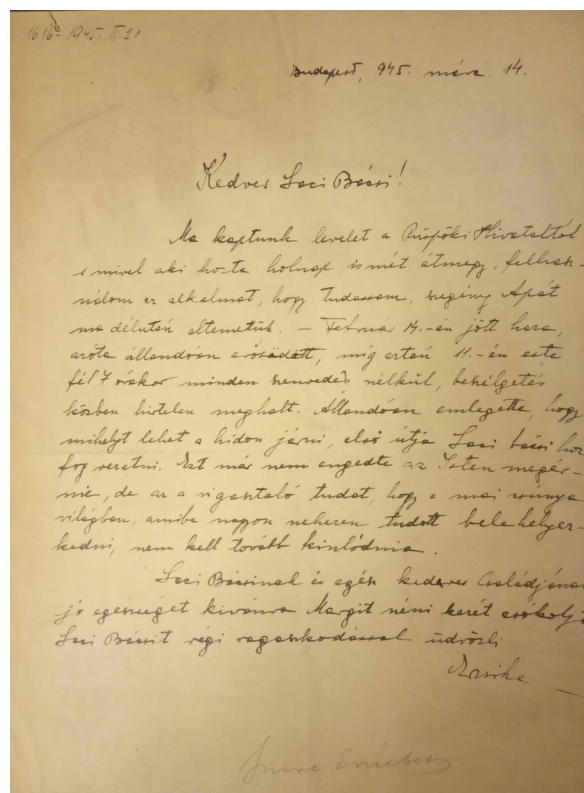 1945. II. 21.
Budapest, 945. márc. 14.
Kedves Laci Bácsi!
Ma kaptunk levelet a Püspöki Hivataltól
s mivel aki hozta holnap ismét átmegy, felhasz-
nálom ez alkalmat, hogy tudassam, szegény Apát
ma délután eltemetük. – Február 14.-én jött haza,
azóta állandóan erősödött, míg aztán 11.-én este
fél 7 órakor minden szenvedés nélkül, beszélgetés
közben hirtelen meghalt. Állandóan emlegette, hogy
mihelyt lehet a hídon járni, első útja Laci bácsihoz
fog vezetni. Ezt már nem engedte az Isten megér-
nie, de az a vigasztaló tudat, hogy a mai
világban, amibe nagyon nehezen tudott bele helyez-
kedni, nem kell tovább kinlódnia.
Laci Bácsinak és egész kedves Családjának
jó egészséget kivánva Margit néni kezét csókolja
Laci Bácsit régi ragaszkodással üdvözli
Erzsike
Erzsébet